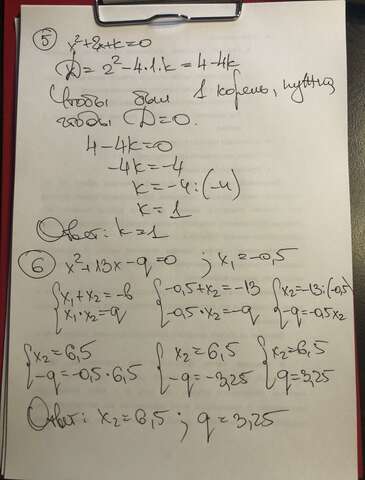 ⑤ x²+2x+k=0
D=2²-4·1·k=4-4k
Чтобы был 1 корень, нужно
чтобы D=0.
4-4k=0
-4k=-4
k=-4:(-4)
k=1
Ответ: k=1
⑥ x²+13x-q=0 ; x₁=-0,5
{x₁+x₂=-b {-0,5+x₂=-13 {x₂=-13:(-0,5)
{x₁·x₂=-q {-0,5·x₂=-q {-q=-0,5x₂
{x₂=6,5 {x₂=6,5 {x₂=6,5
{-q=-0,5·6,5 {-q=-3,25 {q=3,25
Ответ: x₂=6,5 ; q=3,25